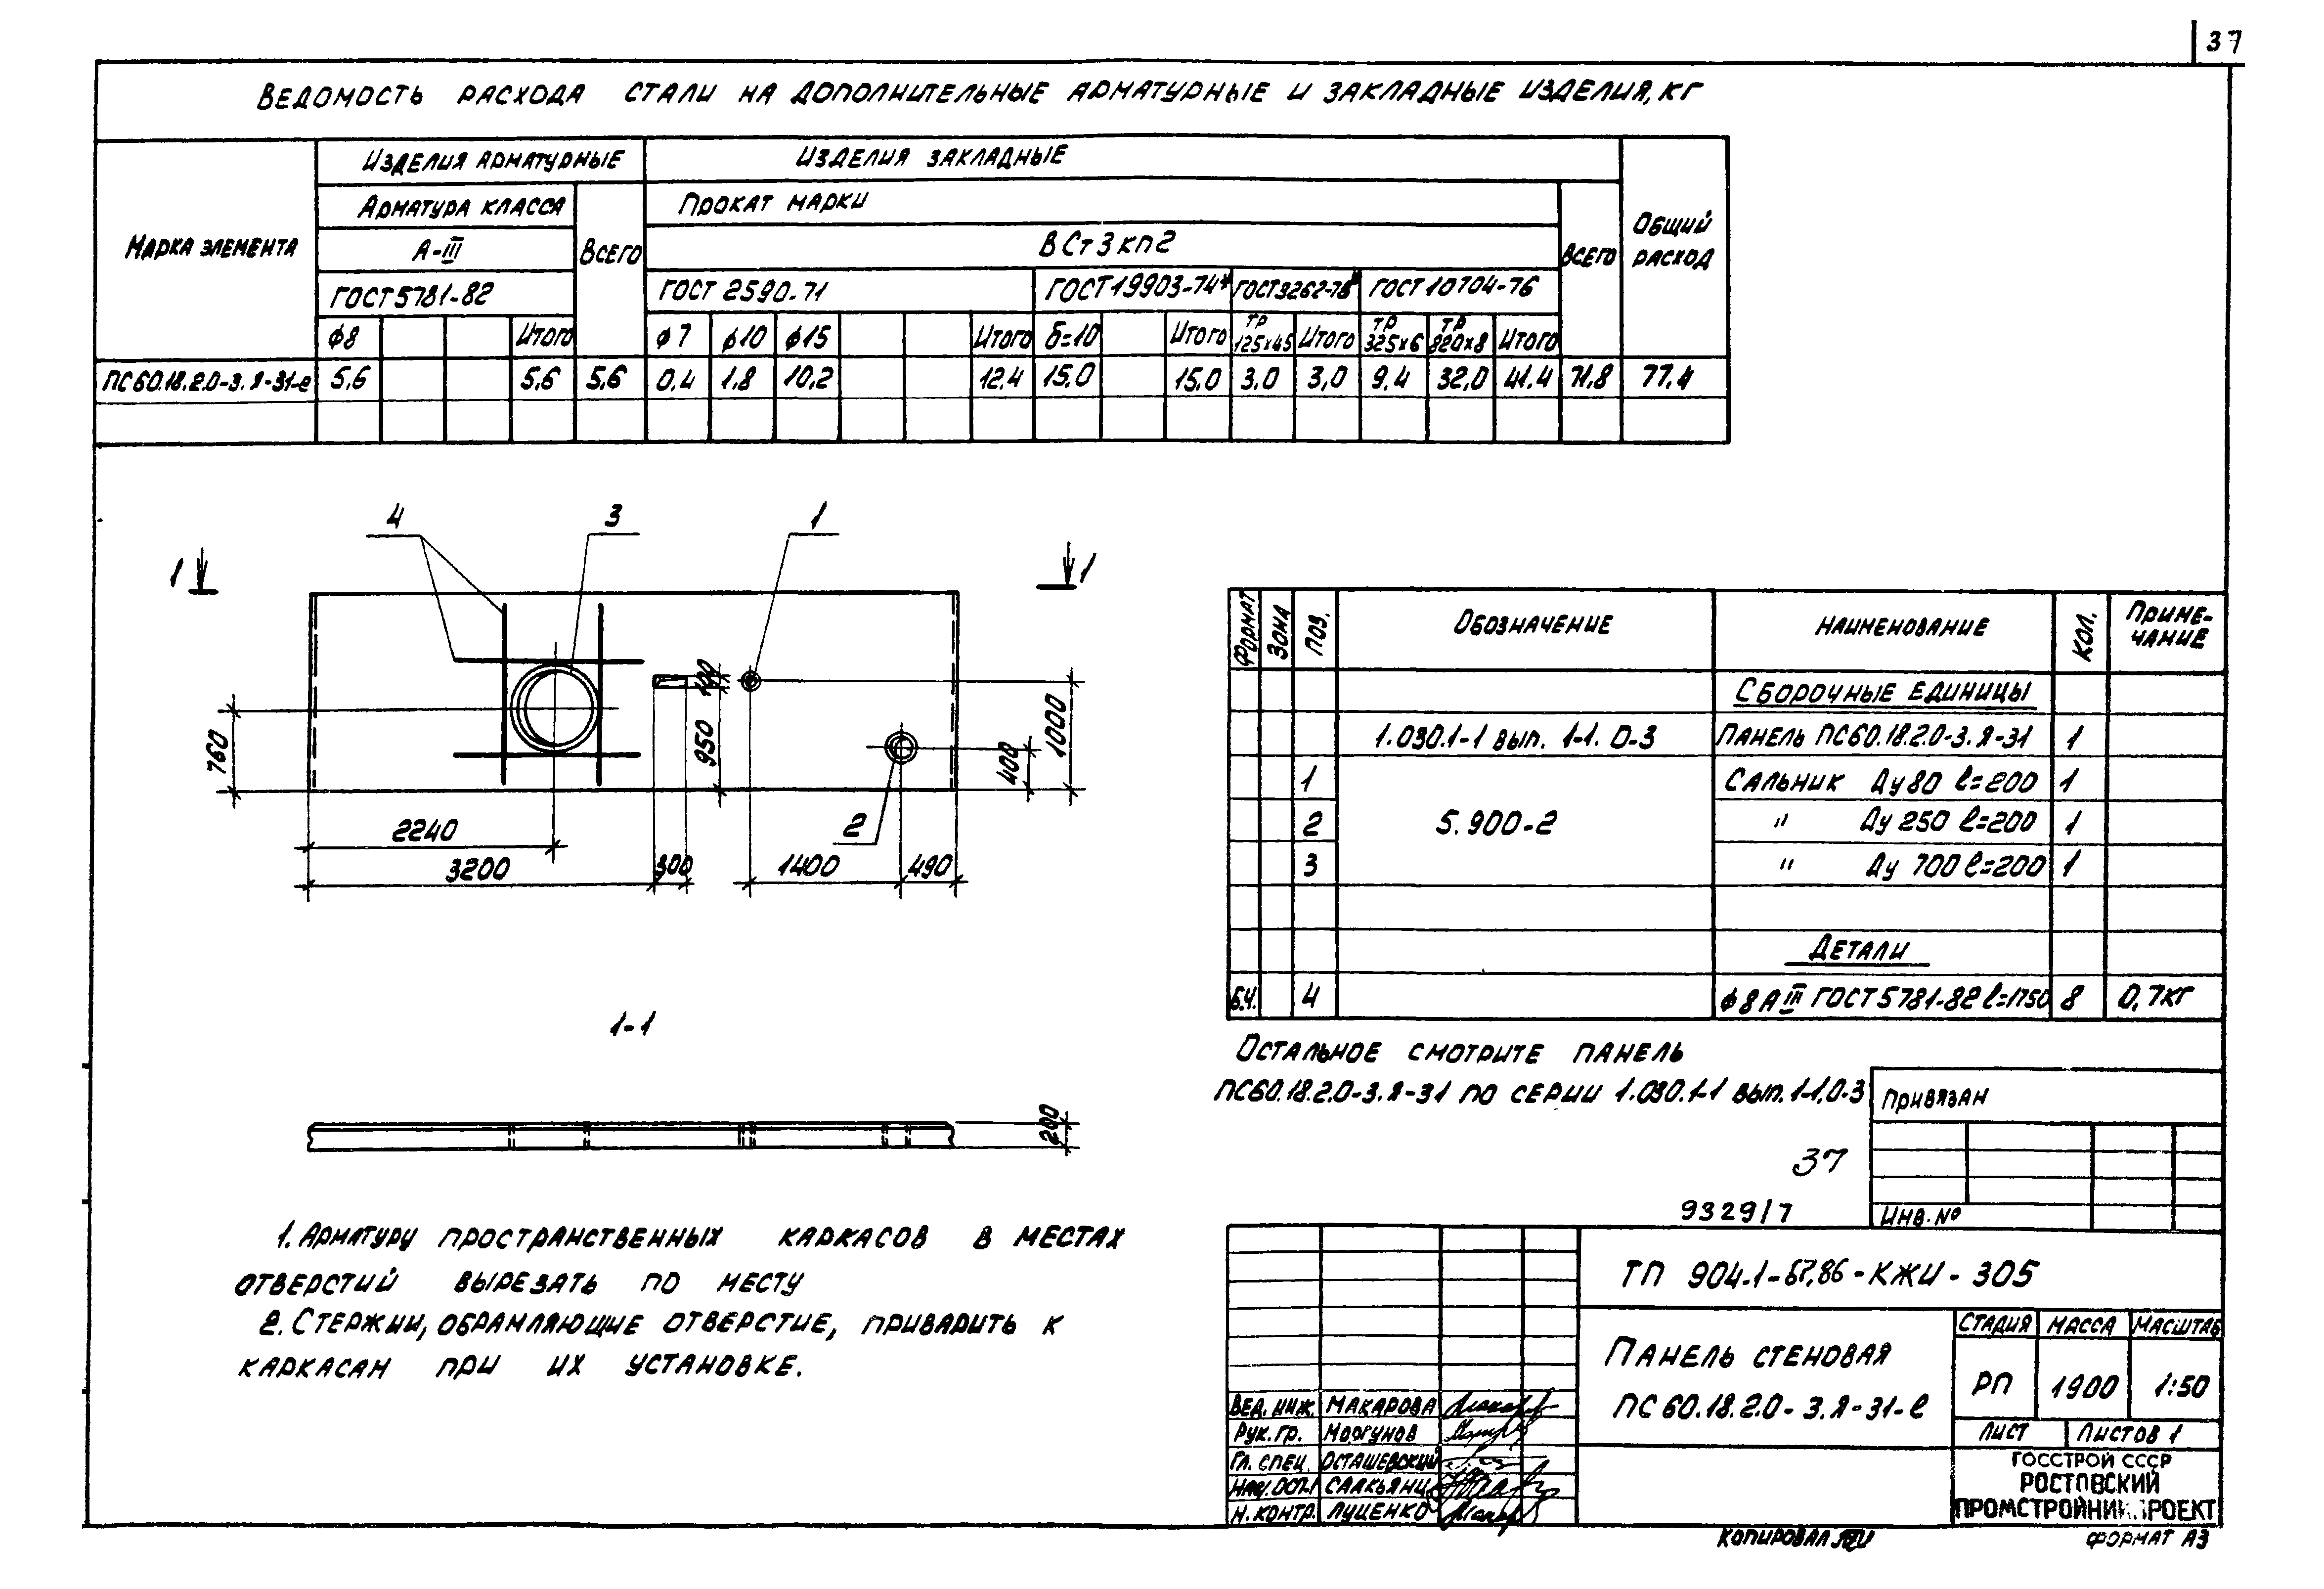 37
Ведомость расхода стали на дополнительные арматурные и закладные изделия, кг
Марка элемента
Изделия арматурные
Изделия закладные
Общий расход
Арматура класса
Всего
Прокат марки
Всего
А-III
ВСт3кп2
ГОСТ 5781-82
ГОСТ 2590-71
ГОСТ 19903-74*
ГОСТ 3262-75*
ГОСТ 10704-76
ф8 Итого ф7 ф10 ф15 Итого δ=10 Итого тр 125х45 Итого тр 325х6 тр 820х8 Итого
ПС60.18.2.0-3.Я-31-е 5,6 5,6 5,6 0,4 1,8 10,2 12,4 15,0 15,0 3,0 3,0 9,4 32,0 41,4 71,8 77,4
4 3 1
1 1
760
100
950
1000
400
2
2240
3200 300 1400 490
1-1
200
Формат Зона Поз. Обозначение Наименование Кол. Приме-
чание
Сборочные единицы
1.030.1-1 вып. 1-1. 0-3 Панель ПС60.18.2.0-3.Я-31 1
1 Сальник Ду 80 ℓ=200 1
2 5.900-2 " Ду 250 ℓ=200 1
3 " Ду 700 ℓ=200 1
Детали
Б.ч. 4 ф8АIII ГОСТ 5781-82 ℓ=1750 8 0,7кг
Остальное смотрите панель
ПС60.18.2.0-3.Я-31 по серии 1.030.1-1 вып. 1-1,0-3
Привязан
37
9329/7
Инв.№
1. Арматуру пространственных каркасов в местах
отверстий вырезать по месту
2. Стержни, обрамляющие отверстие, приварить к
каркасам при их установке.
ТП 904.1-67.86-КЖИ-305
Панель стеновая
ПС60.18.2.0-3.Я-31-е
Стадия Масса Масштаб
РП 1900 1:50
Лист Листов 1
Вед. инж. Макарова
Рук. гр. Моргунов
Гл. спец. Осташевский
Нач. ОСП-1 Саакьянц
Н. контр. Луценко
ГОССТРОЙ СССР
РОСТОВСКИЙ
ПРОМСТРОЙНИИПРОЕКТ
Копировал
Формат А3